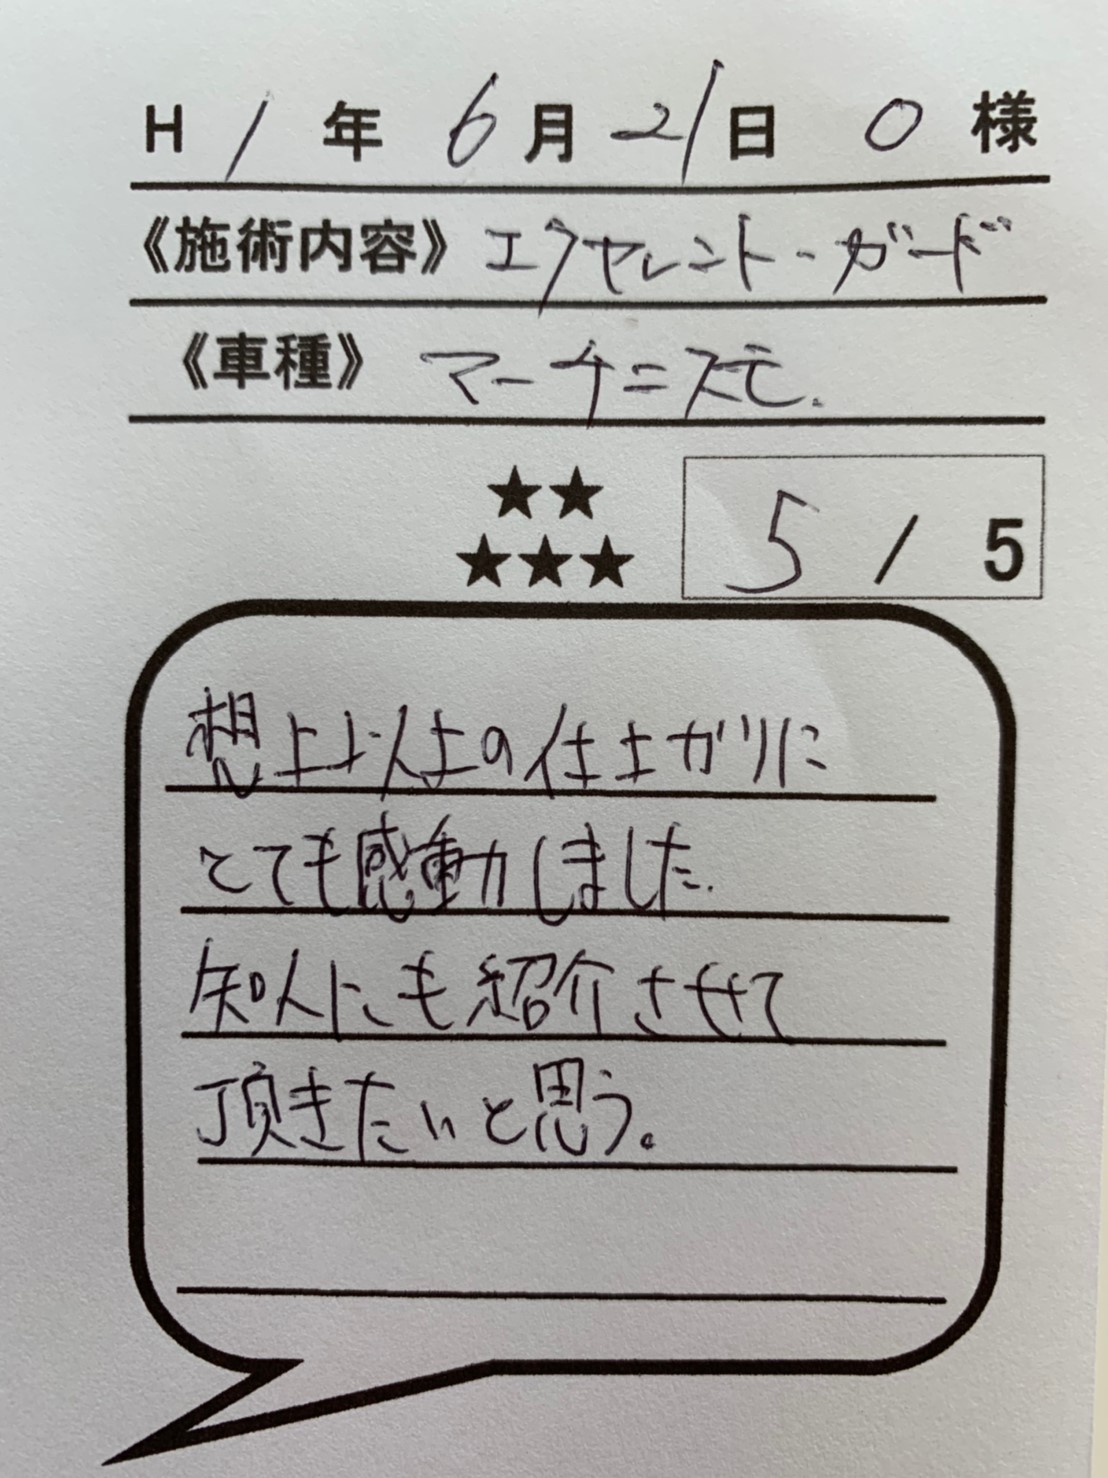 H 1 年 6 月 21 日 O 様
《施術内容》エクセレント・ガード
《車種》マーチニスモ.
★★
★★★ 5 / 5
想上以上の仕上がりに
とても感動しました.
知人にも紹介させて
頂きたいと思う。